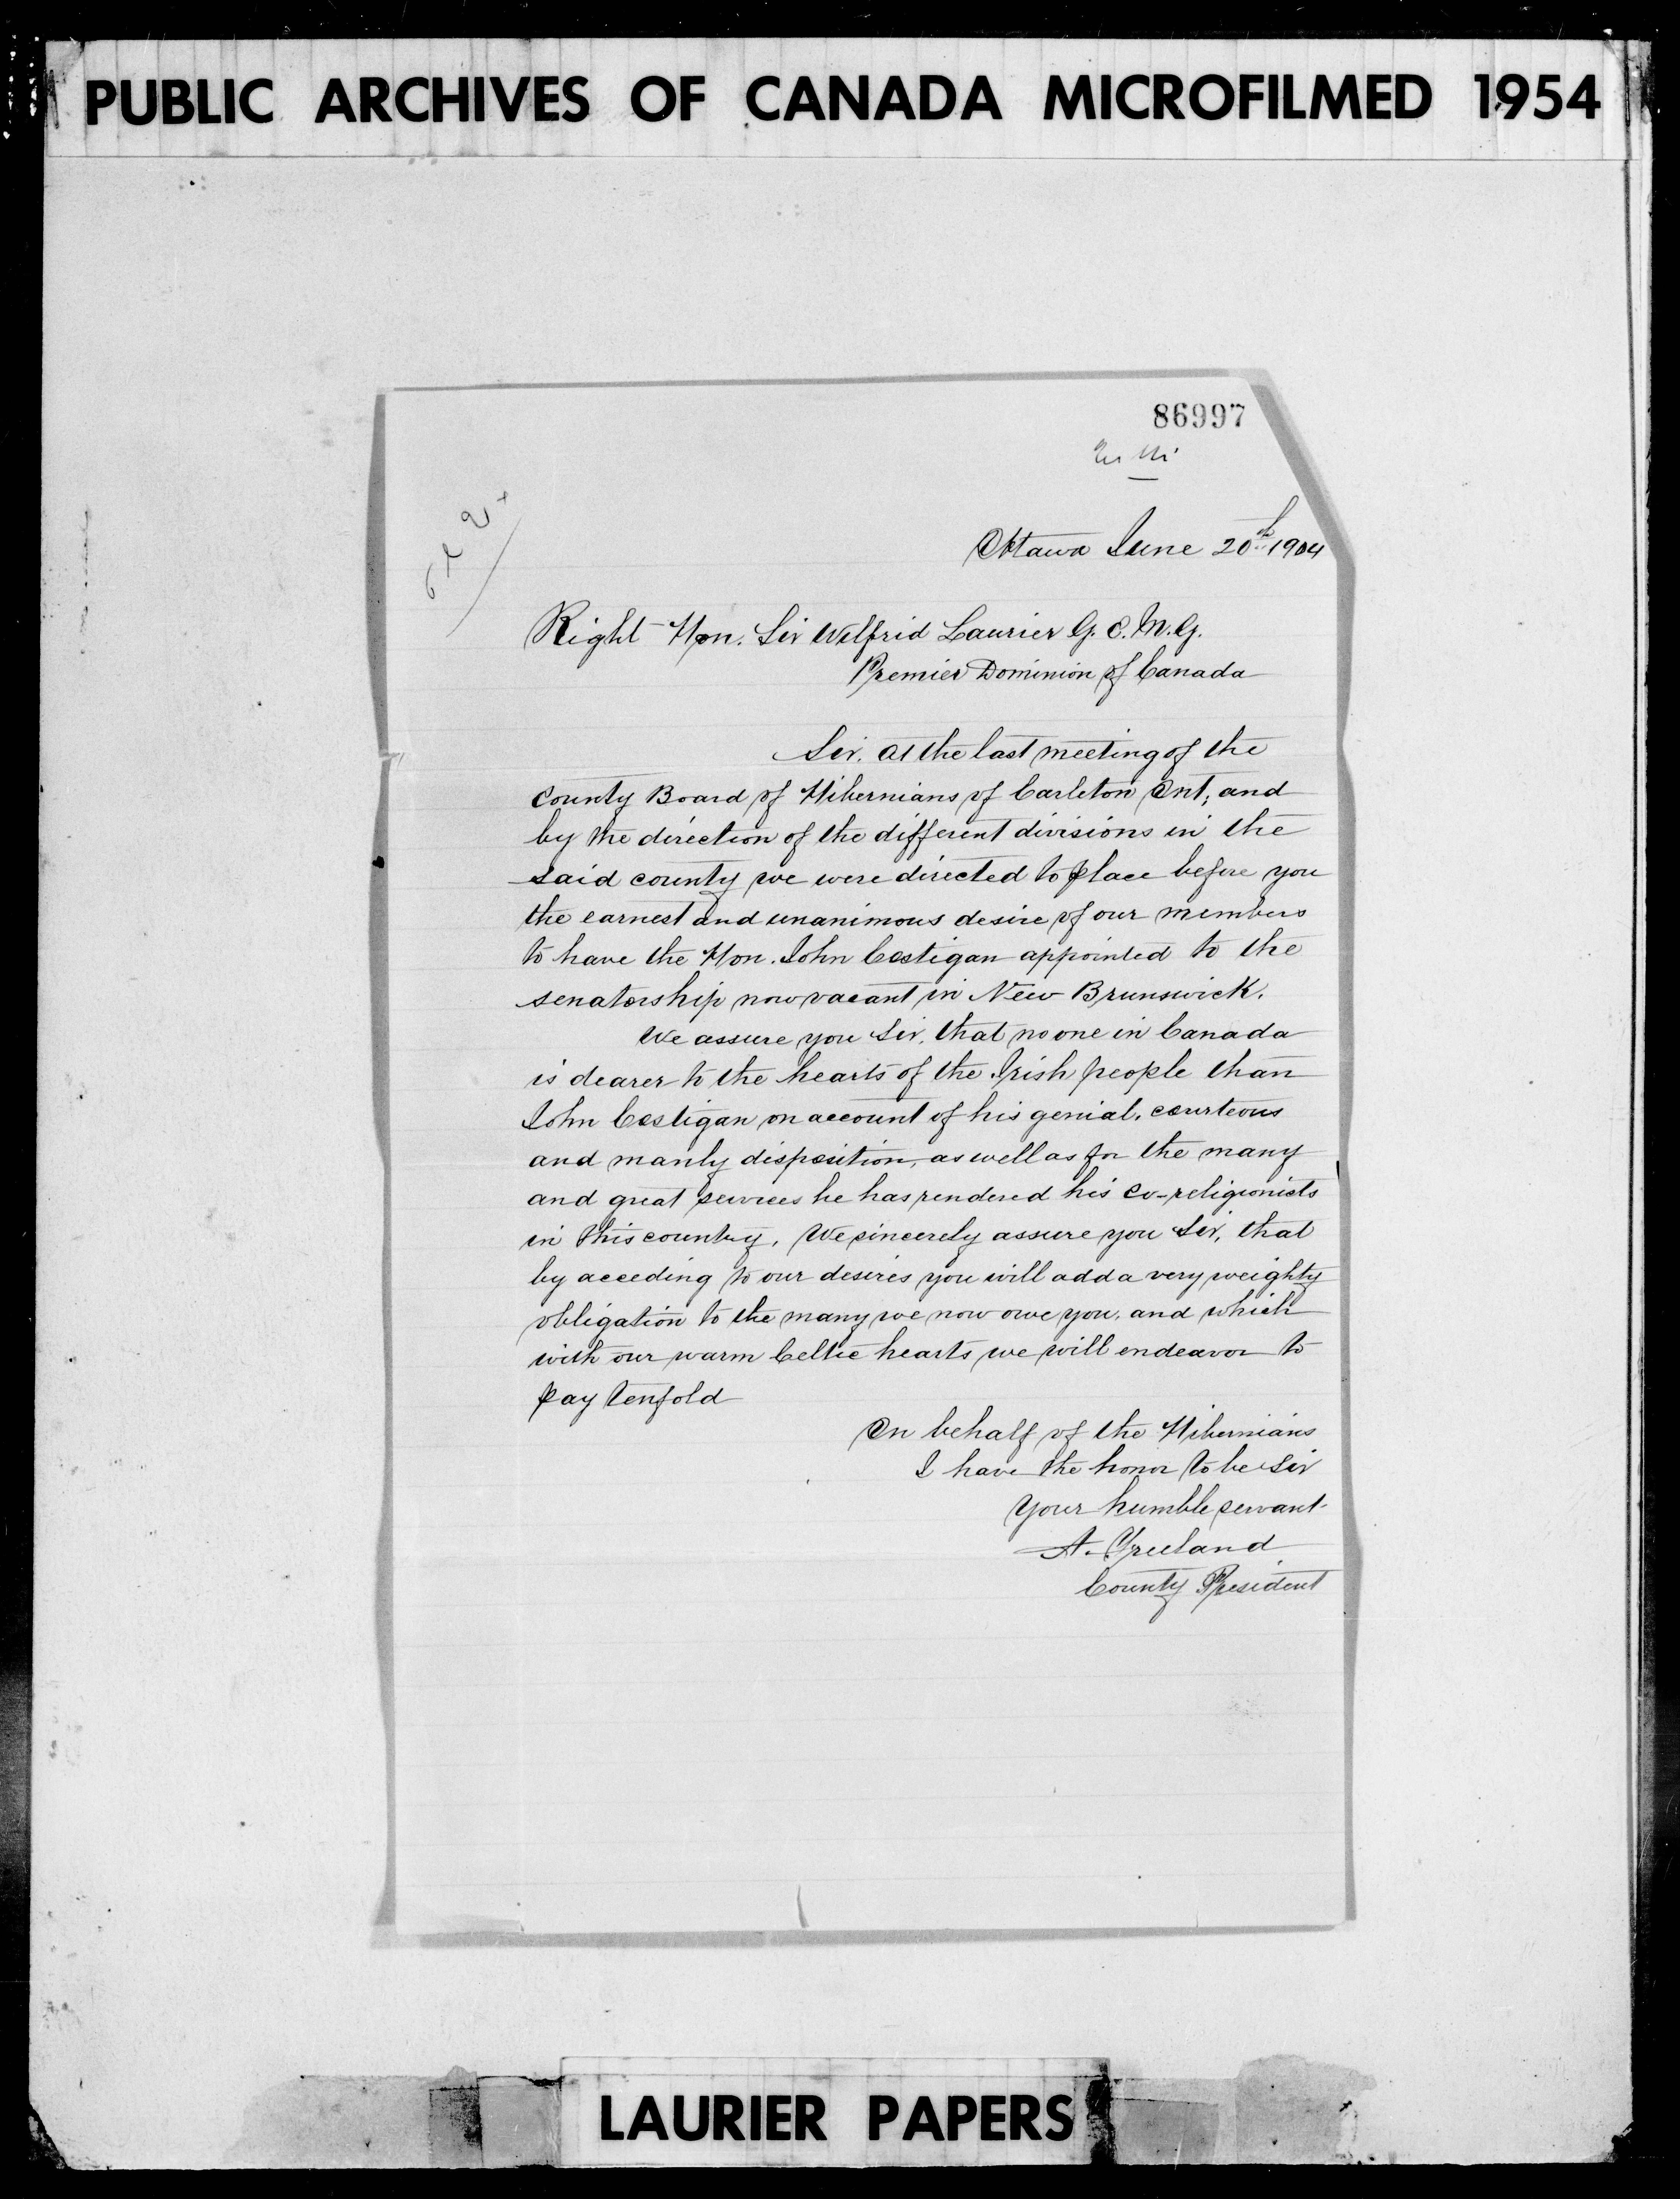 PUBLIC ARCHIVES OF CANADA MICROFILMED 1954
86997
Ottawa June 20th 1904
Right Hon. Sir Wilfrid Laurier G.C.M.G.
Premier Dominion of Canada
Sir, At the last meeting of the
County Board of Hibernians of Carleton Ont; and
by the direction of the different divisions in the
said county we were directed to place before you
the earnest and unanimous desire of our members
to have the Hon. John Costigan appointed to the
senatorship now vacant in New Brunswick.
We assure you Sir, that no one in Canada
is dearer to the hearts of the Irish people than
John Costigan on account of his genial, courteous
and manly disposition, as well as for the many
and great services he has rendered his co-religionists
in this country. We sincerely assure you Sir, that
by acceding to our desires you will add a very weighty
obligation to the many we now owe you, and which
with our warm Celtic hearts we will endeavor to
pay tenfold
On behalf of the Hibernians
I have the honor to be Sir
Your humble servant
A. Freeland
County President
LAURIER PAPERS